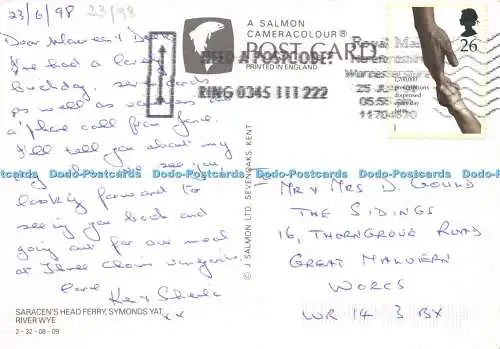 23/6/98
23/98
Dear Maureen & Derek
I've had a lovely
birthday, several cards
as well as various
a 'phone call from Jane.
I'll tell you about my
day when we see you
looking forward to
seeing you both and
going out for our meal
at Three Choirs Vineyards.
Love
Ken & Sheila
xx
SARACEN'S HEAD FERRY, SYMONDS YAT,
RIVER WYE
2-32-08-09
A SALMON
CAMERACOLOUR®
POST CARD
PRINTED IN ENGLAND
NEED A POSTCODE?
RING 0345 111 222
Royal Mail
Herefordshire
Worcestershire
25
11704570
26
1,700,000
prescriptions
dispensed
every day
© J SALMON LTD. SEVENOAKS, KENT
MR & MRS D. GOULD
THE SIDINGS
16, THORNGROVE ROAD
GREAT MALVERN
WORCS
WR 14 3 BX
Dodo-Postcards Dodo-Postcards Dodo-Postcards Dodo-Postcards Dodo-Postcards